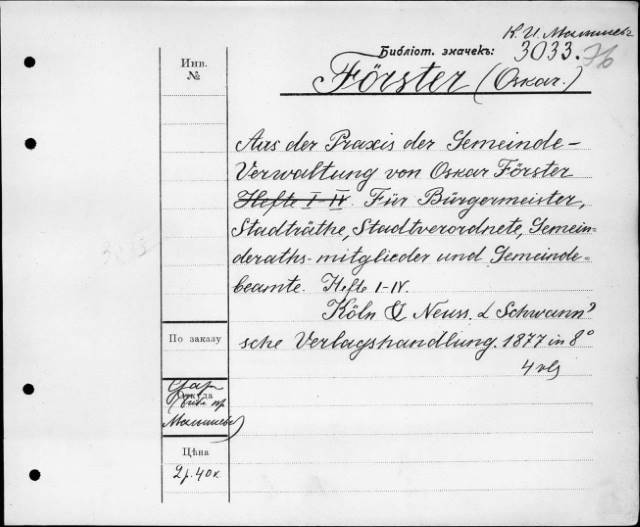 К. И. Малышевъ
Библіот. значекъ: 3033. 76
Förster (Oskar.)
Инв.
№
Aus der Praxis der Gemeinde-
Verwaltung von Oskar Förster
Hefte I-IV. Für Bürgermeister,
Stadträthe, Stadtverordnete, Gemein=
deraths-mitglieder und Gemeinde=
beamte. Hefte I-IV.
Köln & Neuss. L Schwann'
sche Verlagshandlung. 1877 in 8°
4 vls
По заказу
Дар
Откуда
Малышева)
Цѣна
2 р. 40 к